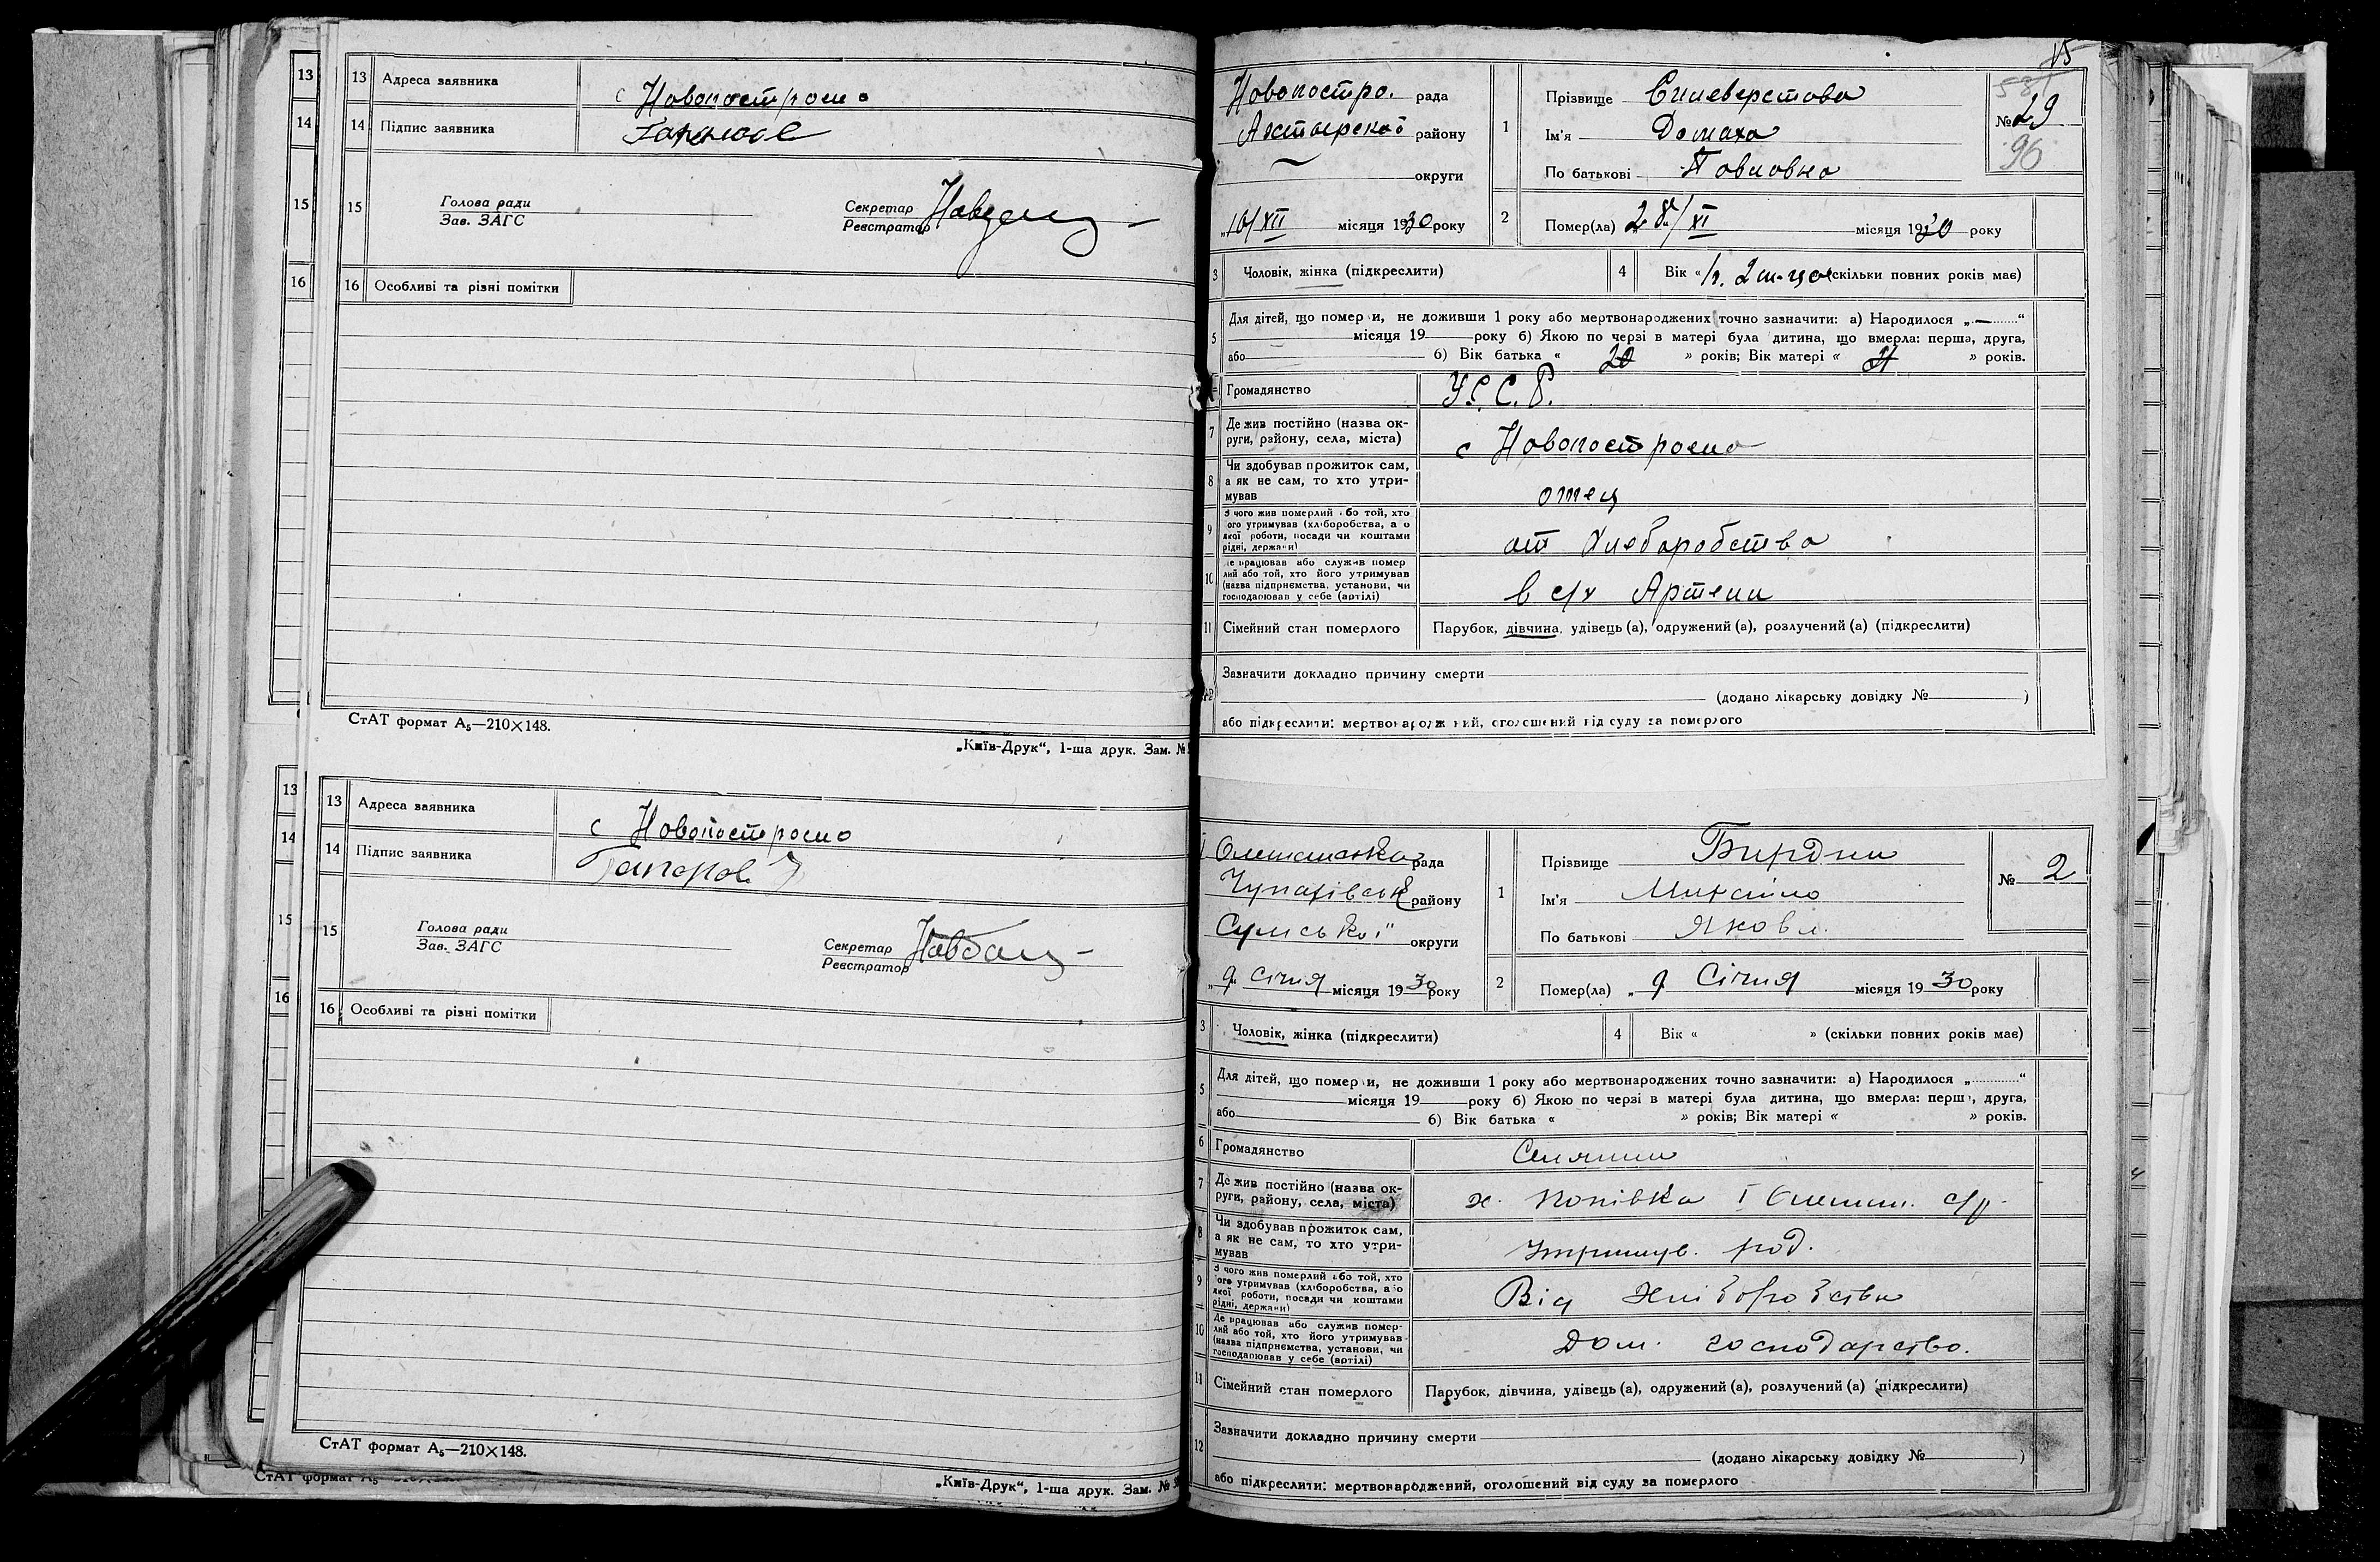 13
14
15
16
13 Адреса заявника с Новопостроено
14 Підпис заявника
15 Голова ради
Зав. ЗАГС
Секретар
Реєстратор
16 Особливі та різні помітки
СтАТ формат А₅—210×148.
„Київ-Друк“, 1-ша друк. Зам. №
13
14
15
16
13 Адреса заявника с Новопостроено
14 Підпис заявника
15 Голова ради
Зав. ЗАГС
Секретар
Реєстратор
16 Особливі та різні помітки
СтАТ формат А₅—210×148.
СтАТ формат А₅
„Київ-Друк“, 1-ша друк. Зам. №
15
Новопостро. рада
Ахтырской району
округи
„10/XII місяця 1930 року
1 Прізвище Силеверстова
Ім'я Домаха
По батькові Павловна
58
№ 29
96
2 Помер(ла) 28/XI місяця 1930 року
3 Чоловік, жінка (підкреслити)
4 Вік « (скільки повних років має)
5 Для дітей, що померли, не доживши 1 року або мертвонароджених точно зазначити: а) Народилося „—“
місяця 19 року б) Якою по черзі в матері була дитина, що вмерла: перша, друга,
або б) Вік батька « 20 » років; Вік матері « 21 » років.
Громадянство У.С.С.Р.
7 Де жив постійно (назва округи, району, села, міста) с Новопостроено
8 Чи здобував прожиток сам, а як не сам, то хто утримував отец
9 З чого жив померлий або той, хто його утримував (хліборобства, або якої роботи, посади чи коштами рідні, держави) от Хлеборобства
10 Де працював або служив померлий або той, хто його утримував (назва підприємства, установи, чи господарював у себе (артілі) в с/х Артели
11 Сімейний стан померлого Парубок, дівчина, удівець (а), одружений (а), розлучений (а) (підкреслити)
12 Зазначити докладно причину смерти
(додано лікарську довідку № )
або підкреслити: мертвонароджений, оголошений від суду за померлого
рада
Чупахівськ району
Сумської округи
„9“ Січня місяця 1930 року
1 Прізвище Бирдин
Ім'я Михайло
По батькові Яковл.
№ 2
2 Помер(ла) „ 9 Січня місяця 1930 року
3 Чоловік, жінка (підкреслити)
4 Вік « » (скільки повних років має)
5 Для дітей, що померли, не доживши 1 року або мертвонароджених точно зазначити: а) Народилося „ “
місяця 19 року б) Якою по черзі в матері була дитина, що вмерла: перша, друга,
або б) Вік батька « » років; Вік матері « » років.
6 Громадянство Селянин
7 Де жив постійно (назва округи, району, села, міста) х. Попівка І Олешан. с/р.
8 Чи здобував прожиток сам, а як не сам, то хто утримував Утримув. род.
9 З чого жив померлий або той, хто його утримував (хліборобства, або якої роботи, посади чи коштами рідні, держави) Від Хліборобства
10 Де працював або служив померлий або той, хто його утримував (назва підприємства, установи, чи господарював у себе (артілі) Дом. господарство.
11 Сімейний стан померлого Парубок, дівчина, удівець (а), одружений (а), розлучений (а) (підкреслити)
12 Зазначити докладно причину смерти
(додано лікарську довідку № )
або підкреслити: мертвонароджений, оголошений від суду за померлого